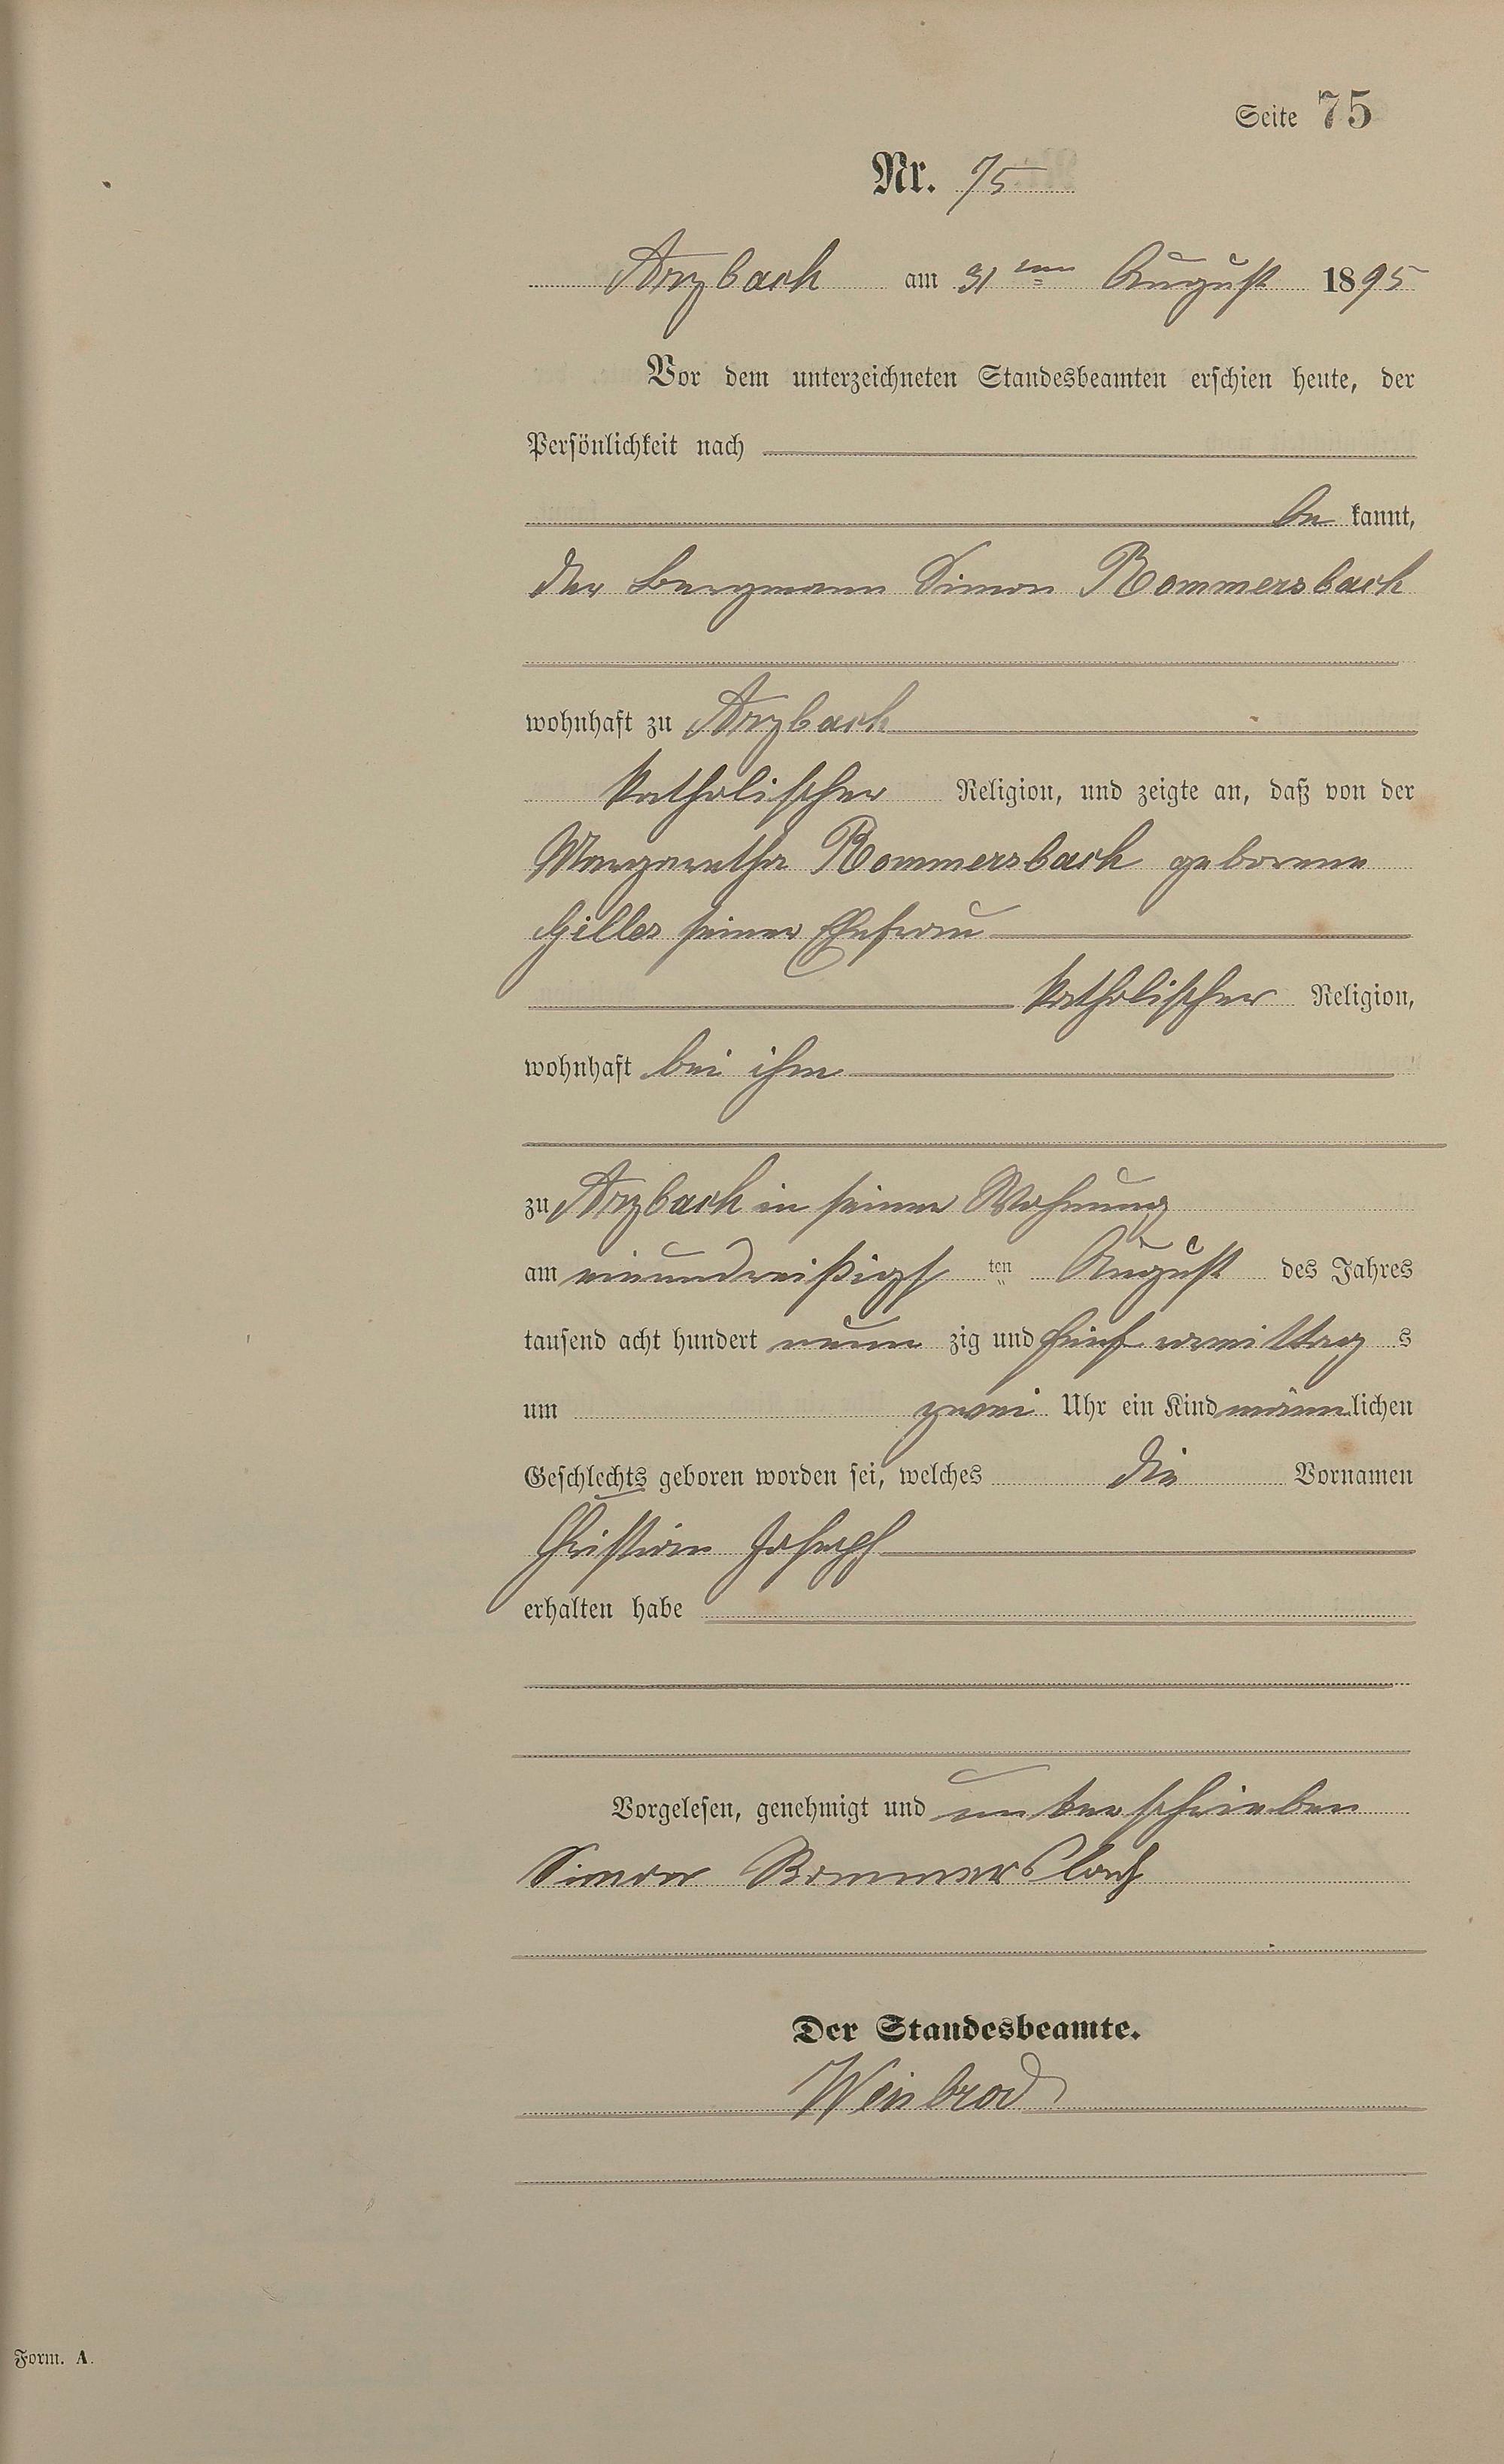 Seite 75
Nr. 75
Arzbach am 31ten August 1895
Vor dem unterzeichneten Standesbeamten erschien heute, der
Persönlichkeit nach
be kannt,
der Bergmann Simon Rommersbach
wohnhaft zu Arzbach
katholischer Religion, und zeigte an, daß von der
Margaretha Rommersbach geborene
Gilles seiner Ehefrau
katholischer Religion,
wohnhaft bei ihm
zu Arzbach in seiner Wohnung
am einundreißigsten August des Jahres
tausend acht hundert neun zig und fünf vormittag s
um zwei Uhr ein Kind männlichen
Geschlechts geboren worden sei, welches die Vornamen
Christian Joseph
erhalten habe
Vorgelesen, genehmigt und unterschrieben
Simon Rommersbach
Der Standesbeamte.
Weinbrod
Form. A.